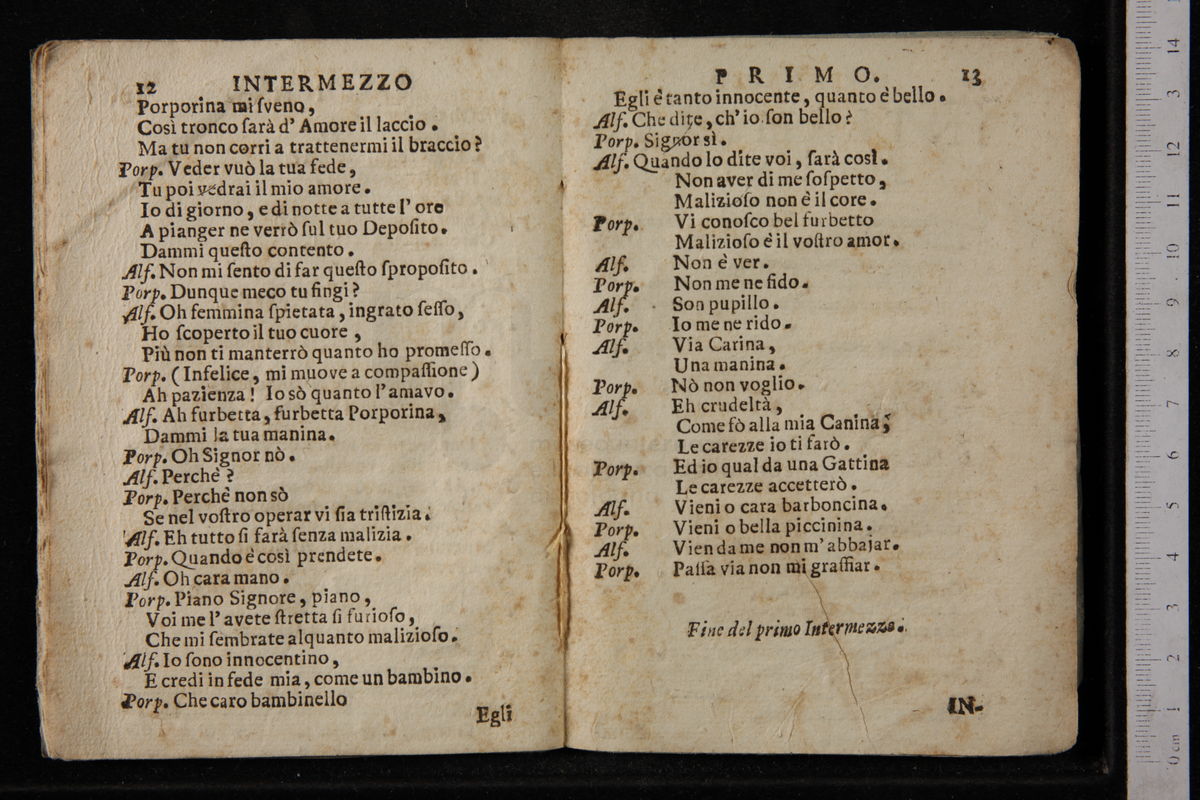 12 INTERMEZZO
Porporina mi ſveno,
Così tronco ſarà d' Amore il laccio.
Ma tu non corri a trattenermi il braccio?
Porp. Veder vuò la tua fede,
Tu poi vedrai il mio amore.
Io di giorno, e di notte a tutte l' ore
A pianger ne verrò ſul tuo Depoſito.
Dammi queſto contento.
Alf. Non mi ſento di far queſto ſpropoſito.
Porp. Dunque meco tu fingi?
Alf. Oh femmina ſpietata, ingrato ſeſſo,
Ho ſcoperto il tuo cuore,
Più non ti manterrò quanto ho promeſſo.
Porp. (Infelice, mi muove a compaſſione)
Ah pazienza! Io sò quanto l'amavo.
Alf. Ah furbetta, furbetta Porporina,
Dammi la tua manina.
Porp. Oh Signor nò.
Alf. Perchè?
Porp. Perchè non sò
Se nel voſtro operar vi ſia triſtizia.
Alf. Eh tutto ſi farà ſenza malizia.
Porp. Quando è così prendete.
Alf. Oh cara mano.
Porp. Piano Signore, piano,
Voi me l' avete ſtretta ſi furioſo,
Che mi ſembrate alquanto malizioſo.
Alf. Io ſono innocentino,
E credi in fede mia, come un bambino.
Porp. Che caro bambinello
Egli
PRIMO. 13
Egli è tanto innocente, quanto è bello.
Alf. Che dite, ch' io ſon bello?
Porp. Signor sì.
Alf. Quando lo dite voi, ſarà così.
Non aver di me ſoſpetto,
Malizioſo non è il core.
Porp. Vi conoſco bel furbetto
Malizioſo è il voſtro amor.
Alf. Non è ver.
Porp. Non me ne fido.
Alf. Son pupillo.
Porp. Io me ne rido.
Alf. Via Carina,
Una manina.
Porp. Nò non voglio.
Alf. Eh crudeltà,
Come fò alla mia Canina;
Le carezze io ti farò.
Porp. Ed io qual da una Gattina
Le carezze accetterò.
Alf. Vieni o cara barboncina.
Porp. Vieni o bella piccinina.
Alf. Vien da me non m' abbajar.
Porp. Paſſa via non mi graffiar.
Fine del primo Intermezzo.
IN-
0 cm 1 2 3 4 5 6 7 8 9 10 11 12 3 14